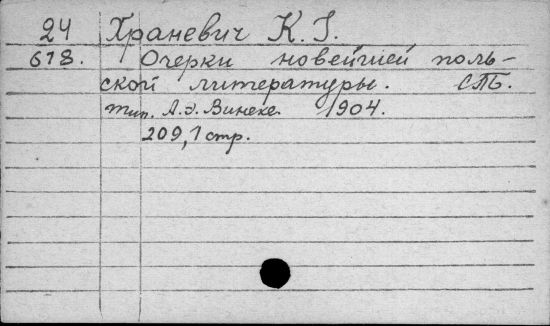 24 Храневич К. І.
618. Очерки новейшей поль-
ской литературы. СПБ.
тип. А.Э. Винеке. 1904.
209,1 стр.